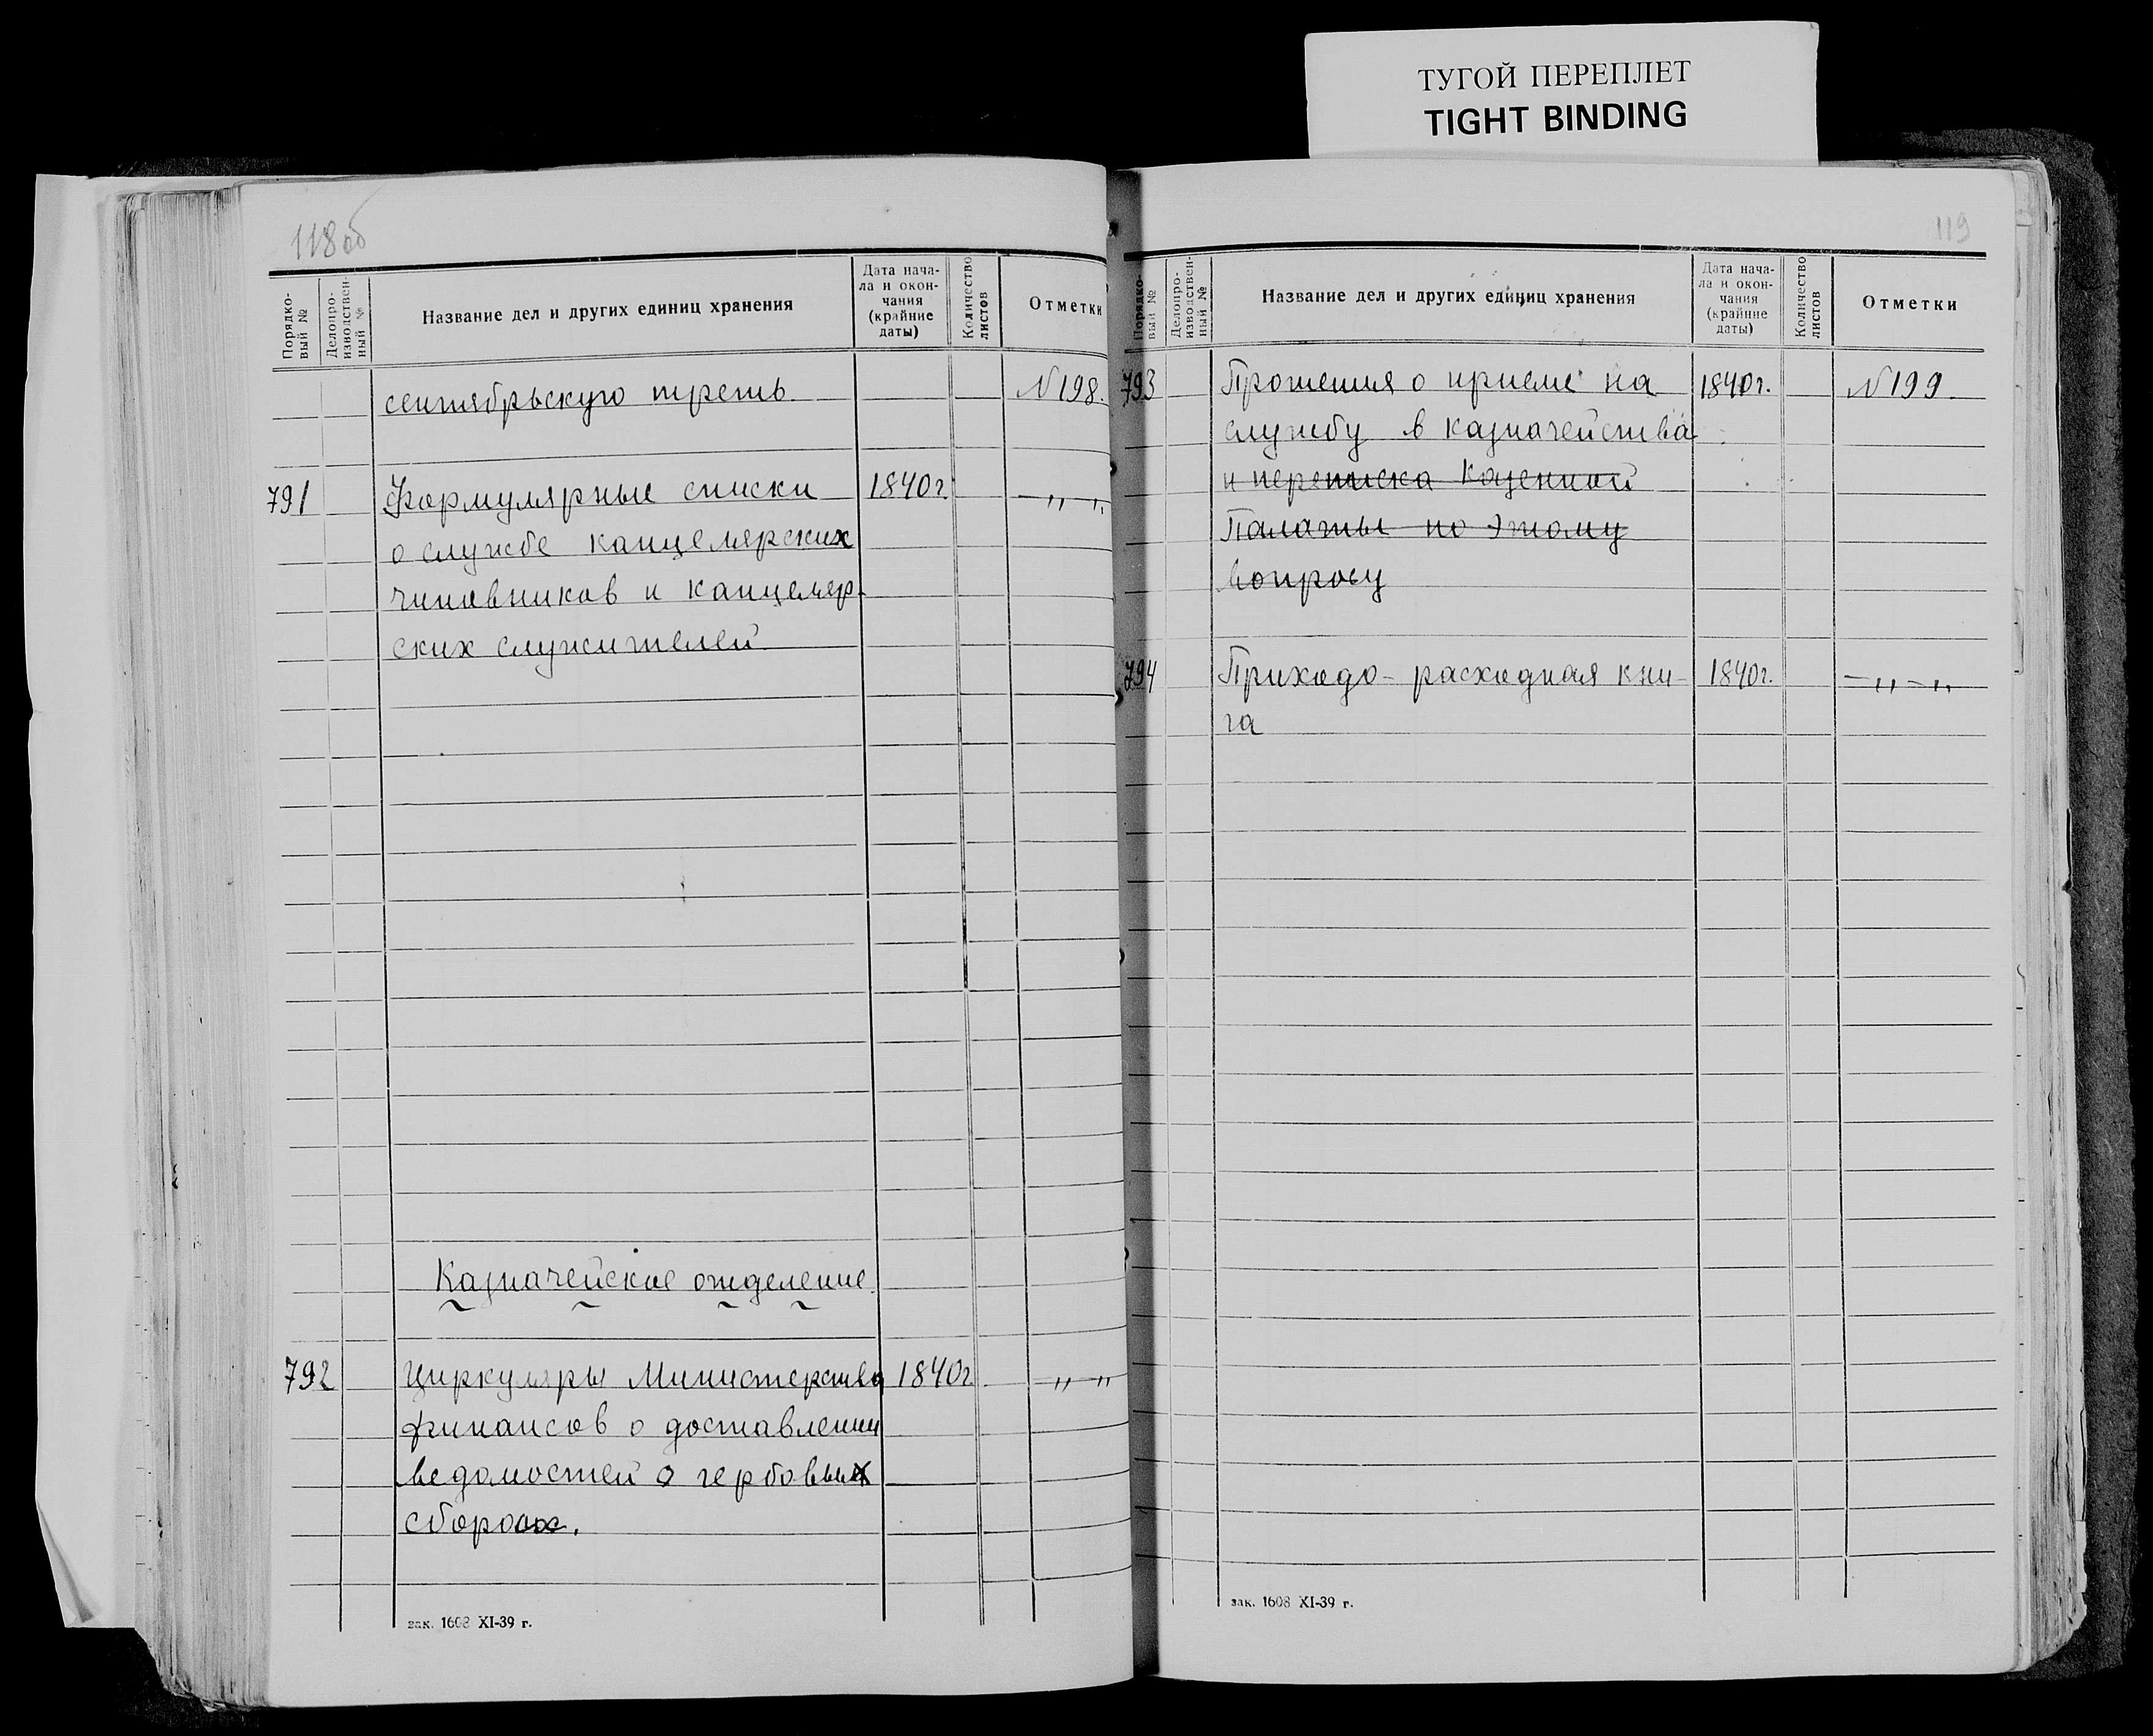 ТУГОЙ ПЕРЕПЛЕТ
TIGHT BINDING
118об
Порядко-
вый №
Делопро-
изводствен-
ный №
Название дел и других единиц хранения
Дата нача-
ла и окон-
чания
(крайние
даты)
Количество
листов
Отметки
сентябрьскую треть. N198.
791 Формулярные списки 1840г. —„—„
о службе канцелярских
чиновников и канцеляр-
ских служителей.
Казначейское отделение.
792 Циркуляры Министерства 1840г. —„—„
финансов о доставлении
ведомостей о гербовых
сборах.
зак. 1608 XI-39 г.
119
Порядко-
вый №
Делопро-
изводствен-
ный №
Название дел и других единиц хранения
Дата нача-
ла и окон-
чания
(крайние
даты)
Количество
листов
Отметки
793 Прошения о приеме на 1840г. N199.
службу в казначейства
и переписка Казенной
Палаты по этому
вопросу
794 Приходо-расходная кни- 1840г. —„—„
га
зак. 1608 XI-39 г.